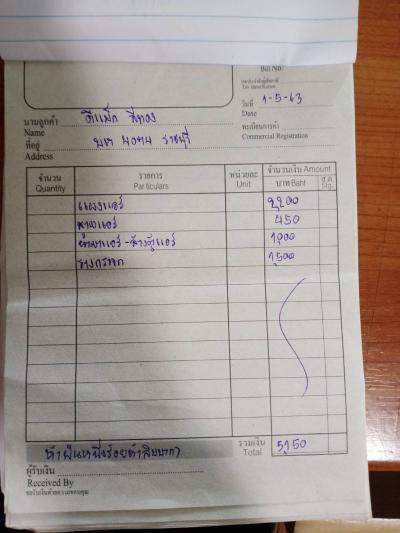 Bill No.
เลขประจำตัวผู้เสียภาษี
Tax Identification
วันที่ 1-5-63
Date
นามลูกค้า ดีแม็ก สีทอง
Name
ทะเบียนการค้า
Commercial Registration
ที่อยู่ ราชบุรี
Address
จำนวน รายการ หน่วยละ จำนวนเงิน Amount
Quantity Particulars Unit บาท Baht ส.ต. Stg.
แผงแอร์ 2,200
สายแอร์ 450
น้ำยาแอร์ - ล้างตู้แอร์ 1,000
1,500
ห้าพันหนึ่งร้อยห้าสิบบาท รวมเงิน 5,150
Total
ผู้รับเงิน
Received By
ขอรับเงินด้วยความขอบคุณ